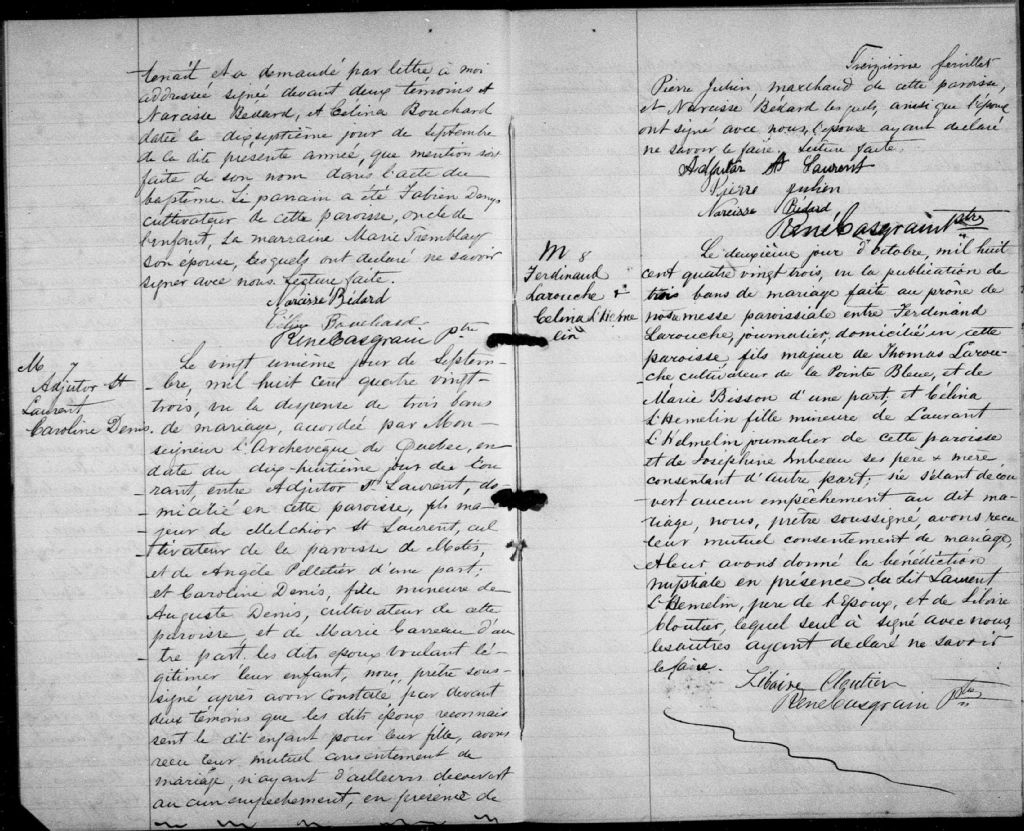 tenait et a demandé par lettre à moi
addressée signée devant deux témoins et
Narcisse Bédard, et Célina Bouchard
datée le dixseptième jour de Septembre
de la dite présente année, que mention soit
faite de son nom dans l'acte du
baptême. Le parrain a été Fabien Denys
cultivateur de cette paroisse, oncle de
l'enfant, la marraine Marie Tremblay
son épouse, lesquels ont déclaré ne savoir
signer avec nous. Lecture faite.
Narcisse Bédard
Célina Bouchard
René Casgrain Ptre
M 7
Adjutor St
Laurent
Caroline Denis.
Le vingt unième jour de Septem-
bre, mil huit cent quatre vingt-
trois, vu la dispense de trois bans
de mariage, accordée par Mon-
seigneur l'Archevêque de Québec, en
date du dix-huitième jour du Cou-
rant, entre Adjutor St Laurent, do-
micilié en cette paroisse, fils ma-
jeur de Melchior St Laurent, cul
tivateur de la paroisse de Métis,
et de Angèle Pelletier d'une part;
et Caroline Denis, fille mineure de
Auguste Denis, cultivateur de cette
paroisse, et de Marie Carreau d'au
tre part. les dits époux voulant lé-
gitimer leur enfant, nous, prêtre sous-
signé après avoir constaté par devant
deux témoins que les dits époux reconnais
sent le dit enfant pour leur fille, avons
reçu leur mutuel consentement de
mariage, n'ayant d'ailleurs découvert
aucun empêchement, en présence de
Treizième feuillet
Pierre Julien marchand de cette paroisse,
et Narcisse Bédard lesquels, ainsi que l'époux
ont signé avec nous, l'épouse ayant declaré
ne savoir le faire. Lecture faite.
Adjutor St Laurent
Pierre Julien
Narcisse Bédard
René Casgrain Ptre
M 8
Ferdinand
Larouche &
Celina L'Heme
lin
Le deuxième jour d'octobre, mil huit
cent quatre vingt trois, vu la publication de
trois bans de mariage faite au prône de
notre messe paroissiale entre Ferdinand
Larouche, journalier, domicilié en cette
paroisse fils majeur de Thomas Larou-
che cultivateur de la Pointe Bleue, et de
Marie Bisson d'une part; et Célina
L'Hemelin fille mineure de Laurant
L'Helmelin journalier de cette paroisse
et de Joséphine Imbeau ses père & mère
consentant d'autre part; ne s'étant décou
vert aucun empêchement au dit ma-
riage, nous, prêtre soussigné, avons recu
leur mutuel consentement de mariage,
& leur avons donné la bénédiction
nuptiale en présence du dit Laurent
L'Hemelin, pere de l'Epoux, et de Liboire
Cloutier, lequel seul à signé avec nous,
les autres ayant declaré ne savoir
le faire.
Liboire Cloutier
René Casgrain Ptre